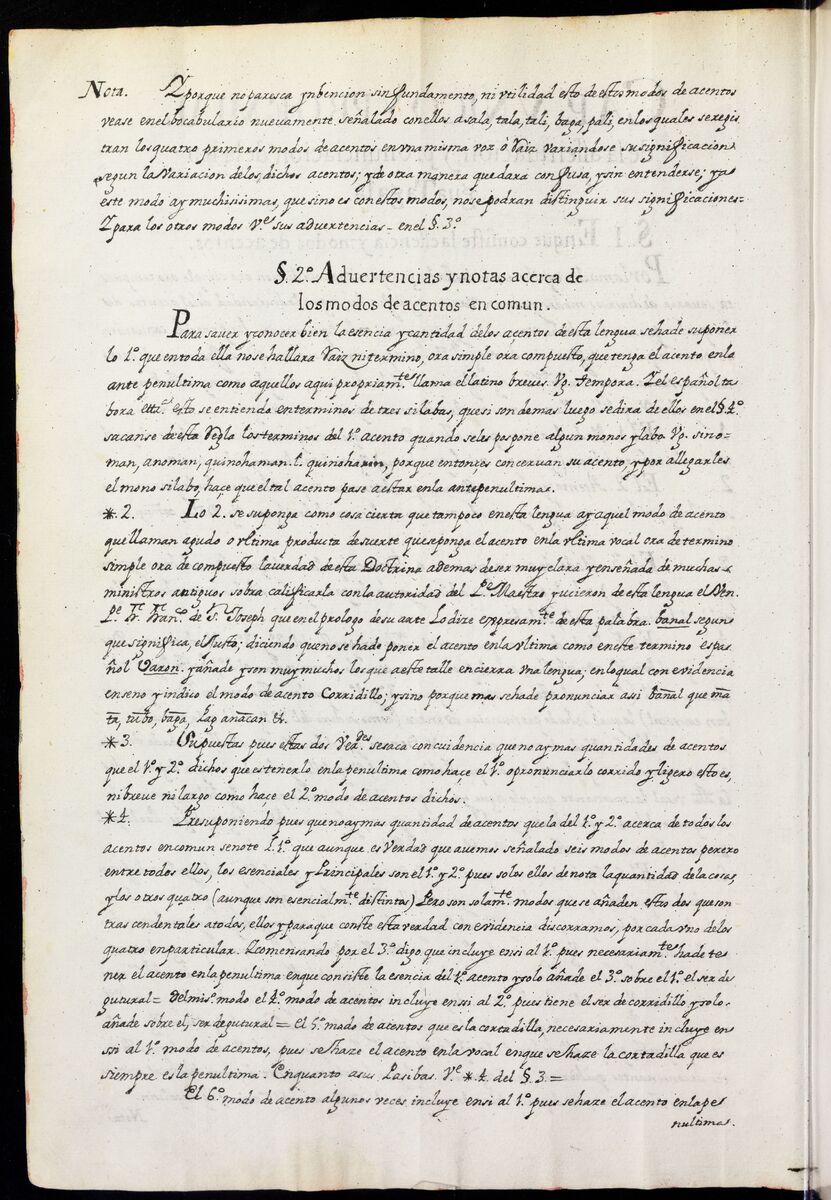 Nota. Y porque no paresca ynbencion sin fundamento, ni vtilidad esto de estos modos de acentos
vease en el bocabulario nuevamente señalado con ellos asala, tala, tali, baga, pali, en los quales se regis
tran los quatro primeros modos de acentos en vna misma voz ò Raiz variandose su significacion
segun la variacion de los dichos acentos; y de otra manera quedara confusa, y sin entenderse; y a
este modo ay muchisimas, que sino es con estos modos, no se podran distinguir sus significaciones =
Y para los otros modos Vᵉ sus aduertencias = en el §. 3º
§. 2º. Aduertencias y notas acerca de
los modos de acentos en comun.
Para saver y conocer bien la esencia y cantidad de los acentos de esta lengua se hade suponer
lo 1º. que en toda ella no se hallara Raiz ni termino, ora simple ora compuesto, que tenga el acento en la
ante penultima como aquellos aqui propriamᵗᵉ llama el latino breves. Vg. tempora. Y el español ta
bora ettᵃ. esto se entiende en terminos de tres silabas, que si son de mas luego se dira de ellos en el §. 4º
sacanse de esta Regla los terminos del 1º. acento quando se les pospone algun monosylabo Vg. sino=
man, anoman, quinohaman. l. quinoharin, porque entonces conceruan su acento, y por allegarles
el monosilabo, haçe que el tal acento pase a estar en la antepenultimar.
*2. Lo 2. se suponga como cosa cierta que tampoco en esta lengua ay aquel modo de acento
que llaman agudo o vltima producta de suerte que se ponga el acento en la vltima vocal ora de termino
simple ora de compuesto la verdad de esta Doctrina ademas de ser muy clara y enseñada de muchos
ministros antiguos sobra calificarla con la autoridad del Pᵉ Maestro y Ciceron de esta lengua el Ven.
Pᵉ Fr. Franᶜᵒ de S. Joseph que en el prologo de su arte Lo dize expresamᵗᵉ de esta palabra. banal segun
que significa, el Justo; diciendo que no se ha de poner el acento en la vltima como en este termino espa
ñol Varon. y añade y son muy muchos los que a este talle encierra vna lengua; en lo qual con evidencia
enseno y indico el modo de acento Corridillo; y sino porque mas se hade pronunciar asi banal que ma
ta, tubo, baga, Pag anacan &.
*3. Supuestas pues estas dos Verᵈᵉˢ se saca con euidencia que no ay mas quantidades de acentos
que el 1º. y 2º. dichos que es tenerlo en la penultima como haçe el 1º. o pronunciarlo corrido y ligero esto es,
ni breve ni largo como hace el 2º. modo de acentos dichos.
*4. Presuponiendo pues que no ay mas quantidad de acentos que la del 1º. y 2º. acerca de todos los
acentos en comun se note L 1º. que aunque es Verdad que auemos señalado seis modos de acentos perero
entre todos ellos, los esenciales y Principales son el 1º. y 2º. pues solos ellos denota la quantidad de la cosa,
y los otros quatro (aunque son esencialmᵗᵉ distintos) Pero son solamᵗᵉ modos que se añaden, estro dos que son
tras cendentales a todos, ellos y para que conste esta verdad con evidencia discorramos, por cada vno de los
quatro en particular. Y comensando por el 3º. digo que incluye en si al 1º. pues necesariamᵗᵉ hade te
ner el acento en la penultima en que consiste la esencia del 1º. acento y solo añade el 3º. sobre el 1º. el ser de
gutural = Del mis.º modo el 4º. modo de acentos incluye en ssi al 2º. pues tiene el ser de corridillo y solo.
añade sobre el, ser de gutural = el 5º. modo de acentos que es la cortadilla, necesariamente incluye en
ssi al 1º. modo de acentos, pues se haze el acento en la vocal en que se haze la cortadilla que es
siempre es la penultima. En quanto a sus Pasibas. Vᵉ *4. del §. 3 =
El 6º. modo de acento algunos veces incluye en si al 1º. pues se haze el acento en la pe
nultimas.